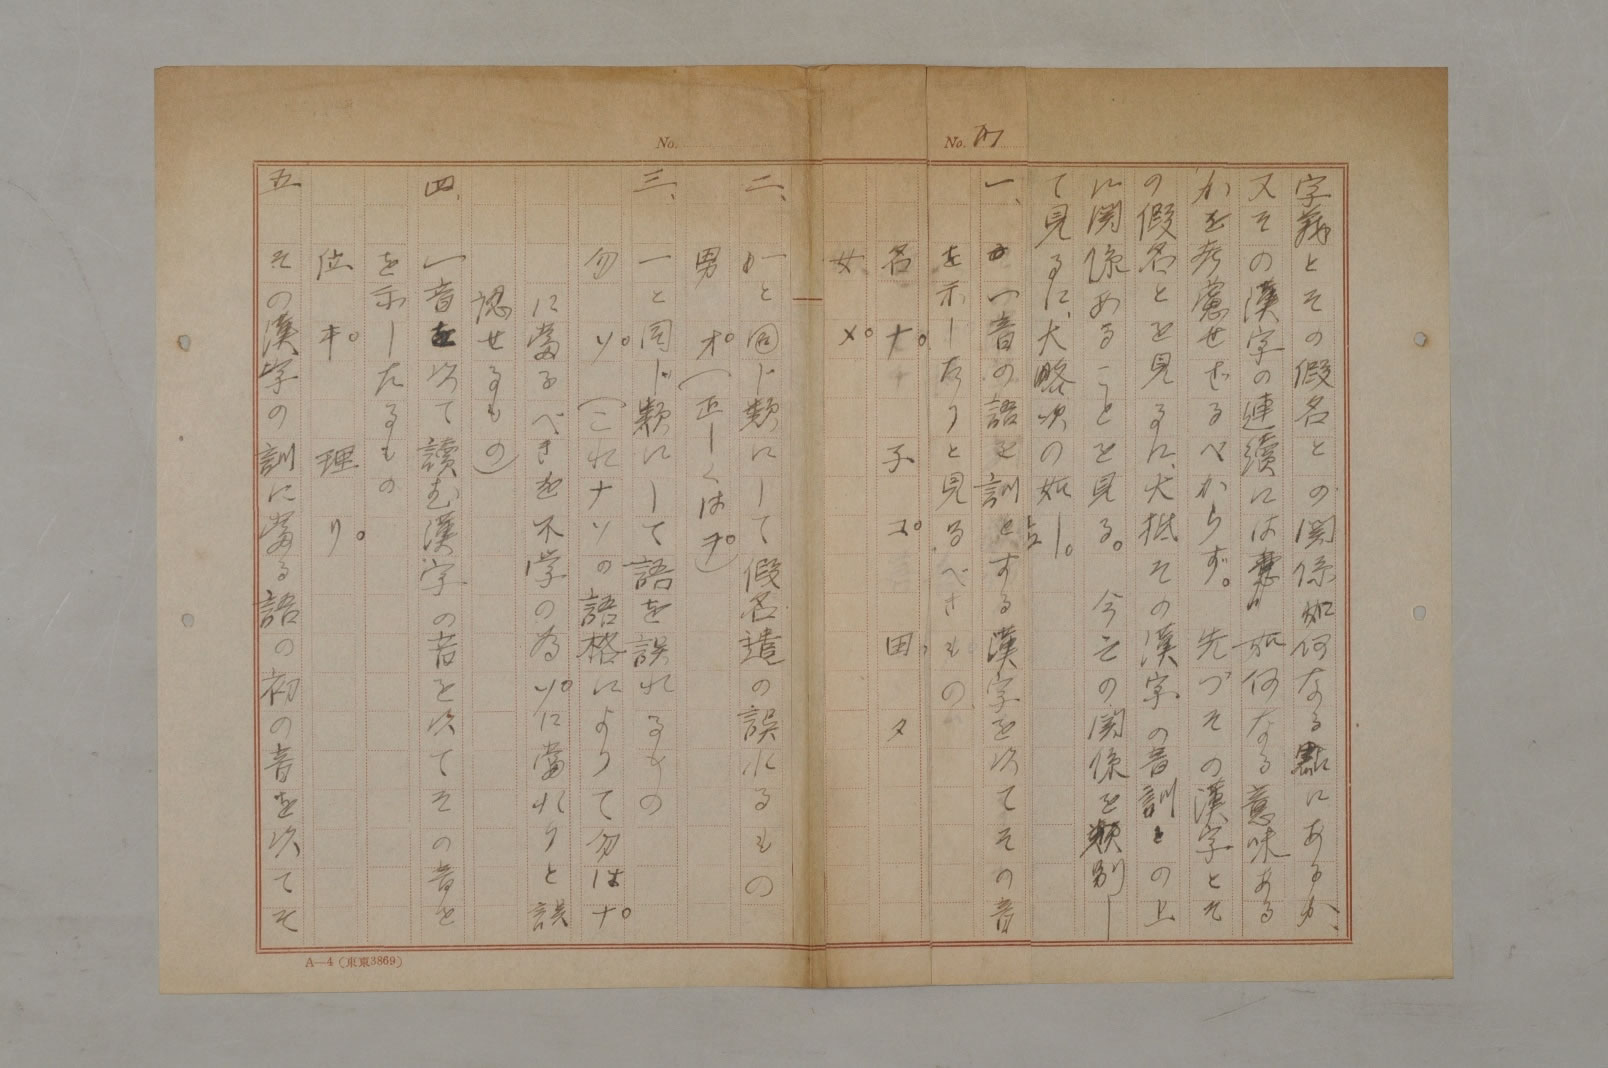 No.
No.
字義とその假名との関係如何なる點にあるか、
又その漢字の連續には如何なる意味ある
かを考慮せざるべからず。先づその漢字とそ
の假名とを見るに、大抵その漢字の音訓との上
に関係あることを見る。今その関係を類別し
て見るに、大略次の如し。
一、一音の語を訓とする漢字を以てその音
を示したりと見るべきもの
名ナ。子コ。田、タ
女メ。
二、一と同じ類にして假名遣の誤れるもの
男オ。(正しくはヲ。)
三、一と同じ類にして語を誤れるもの
勿ソ。(これナソの語格によりて勿はナ。
に當るべきを不学の為ソ。に當れりと誤
認せるもの)
四、一音を以て讀む漢字の音を以てその音を
を示したるもの
位キ。理リ。
五その漢字の訓に當る語の初の音を以てそ
A—4(東東3869)